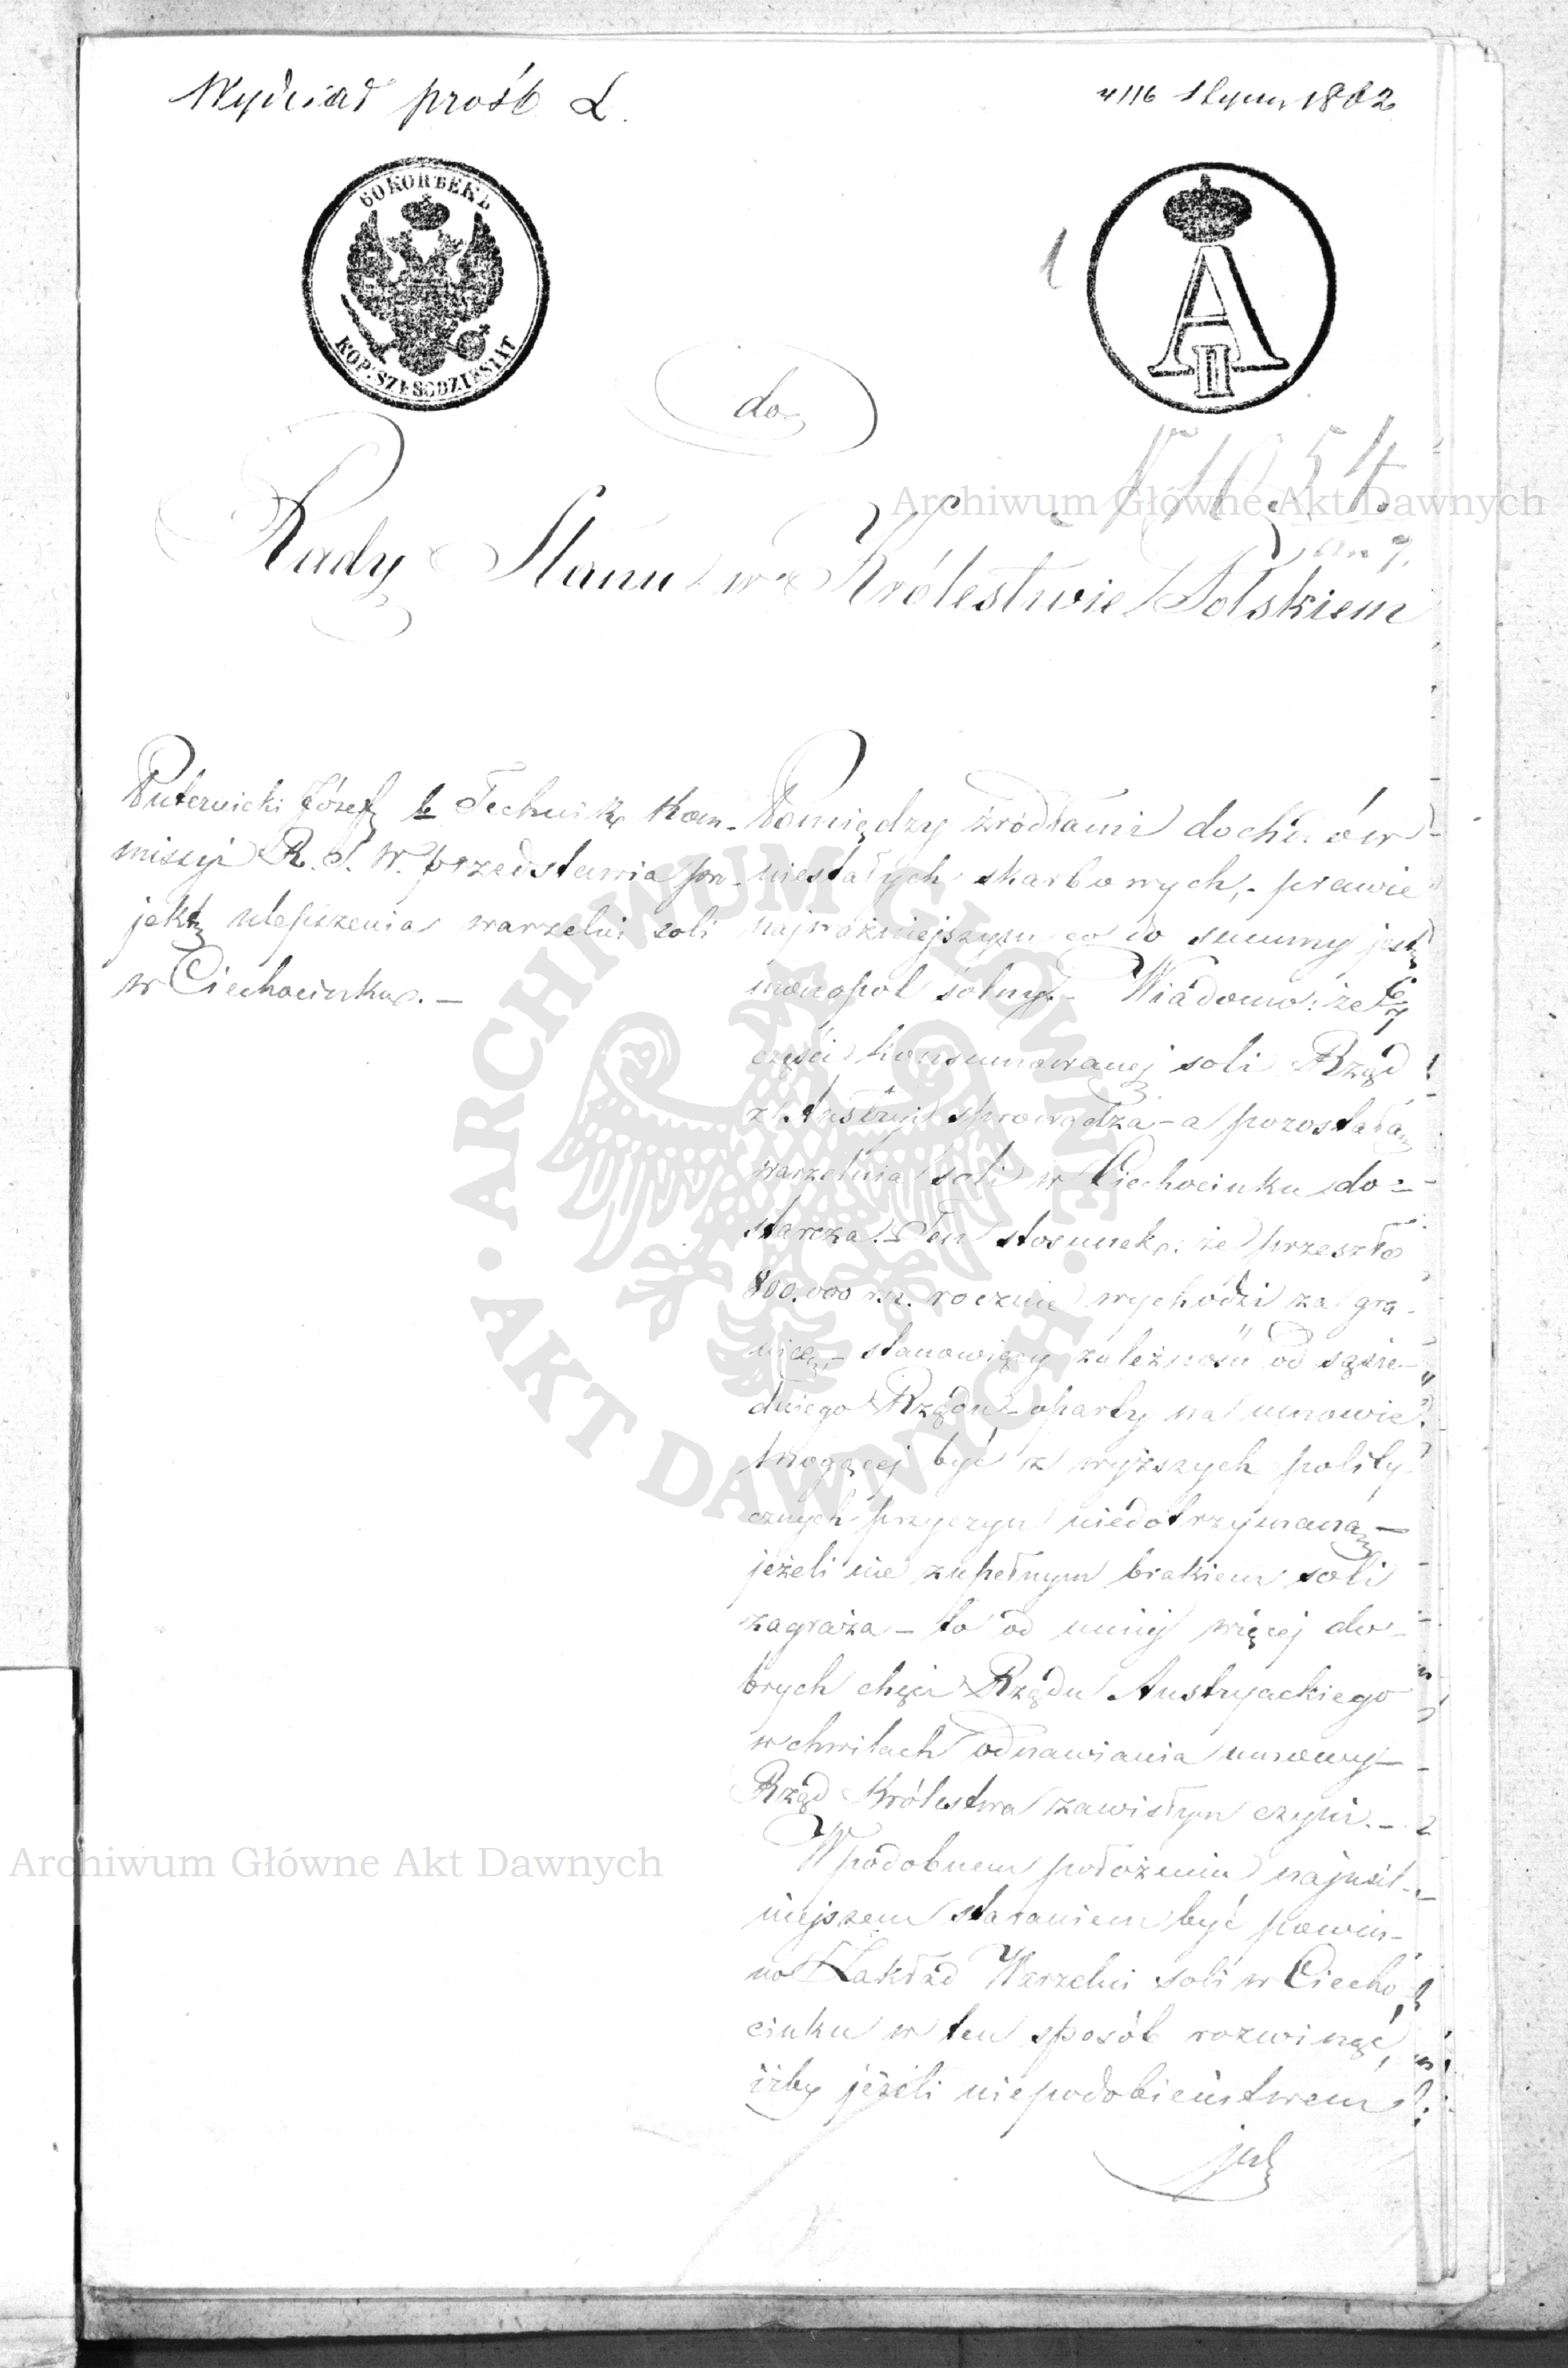 Wydział próśb L.
4/16 Stycz. 1862
60 КОПѢЕКЪ
KOP. SZEŚĆDZIESIĄT
A II
1
do
N 1054
Archiwum Główne Akt Dawnych
Rady Stanu w Królestwie Polskiem
Puternicki Józef b. Technik Kom-
missyi R. S. W. przedstawia pro-
jekt ulepszenia warzelni soli
w Ciechocinku. —
Pomiędzy źródłami dochodów
niestałych skarbowych, - prawie
najważniejszym co do summy jest
monopol solny. - Wiadomo: że 6/7
części konsumowanej soli Rząd
z Austryi sprowadza - a pozostałą
warzelnia soli w Ciechocinku do-
starcza. Ten stosunek: że przeszło
800.000 rs. rocznie wychodzi za gra-
nicę, - stanowiący zależność od sąsie-
dniego Rządu - oparty na umowie
mogącej być z wyższych polity-
cznych przyczyn niedotrzymaną —
jeżeli nie zupełnym brakiem soli
zagraża - to od mniej więcej do-
brych chęci Rządu Austryackiego
w chwilach odnawiania umowy —
Rząd Królestwa zawisłym czyni. —
W podobnem położeniu najusil-
niejszem staraniem być powin-
no Zakład Warzelni soli w Ciecho-
cinku w ten sposób rozwinąć,
iżby jeżeli niepodobieństwem
jest
Archiwum Główne Akt Dawnych
ARCHIWUM GŁÓWNE • AKT DAWNYCH •